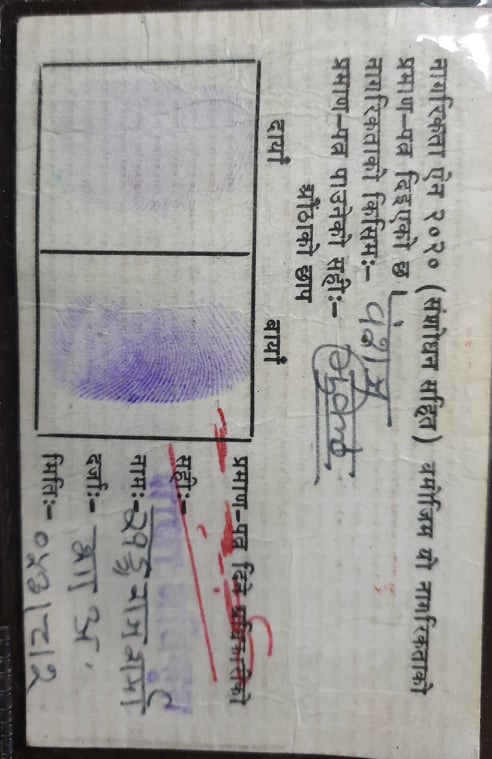 नागरिकता ऐन २०२० (संशोधन सहित) बमोजिम यो नागरिकताको
प्रमाण-पत्र दिइएको छ ।
नागरिकताको किसिमः- वंशज
प्रमाण-पत्र पाउनेको सहीः-
औंठाको छाप
दायाँ बायाँ
प्रमाण-पत्र दिने अधिकारीको
सहीः-
नामः-
दर्जाः-
मितिः- ०४३।८।२